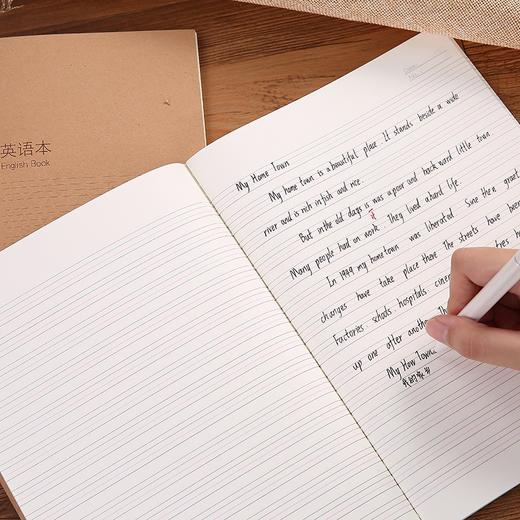 英语本
English Book
Date:
No.:
My Home Town
My home town is a beautiful place. It stands beside a wide
river and is rich in fish and rice.
But in the old days is was a poor and back ward little town
Many people had on work. They lived a hard life.
In 1949 my hometown was liberated. Sine then great
changes have take place there The streets have been
Factories. schools. hospitals. ries h
up one after another Th
My How Town.
我的家乡